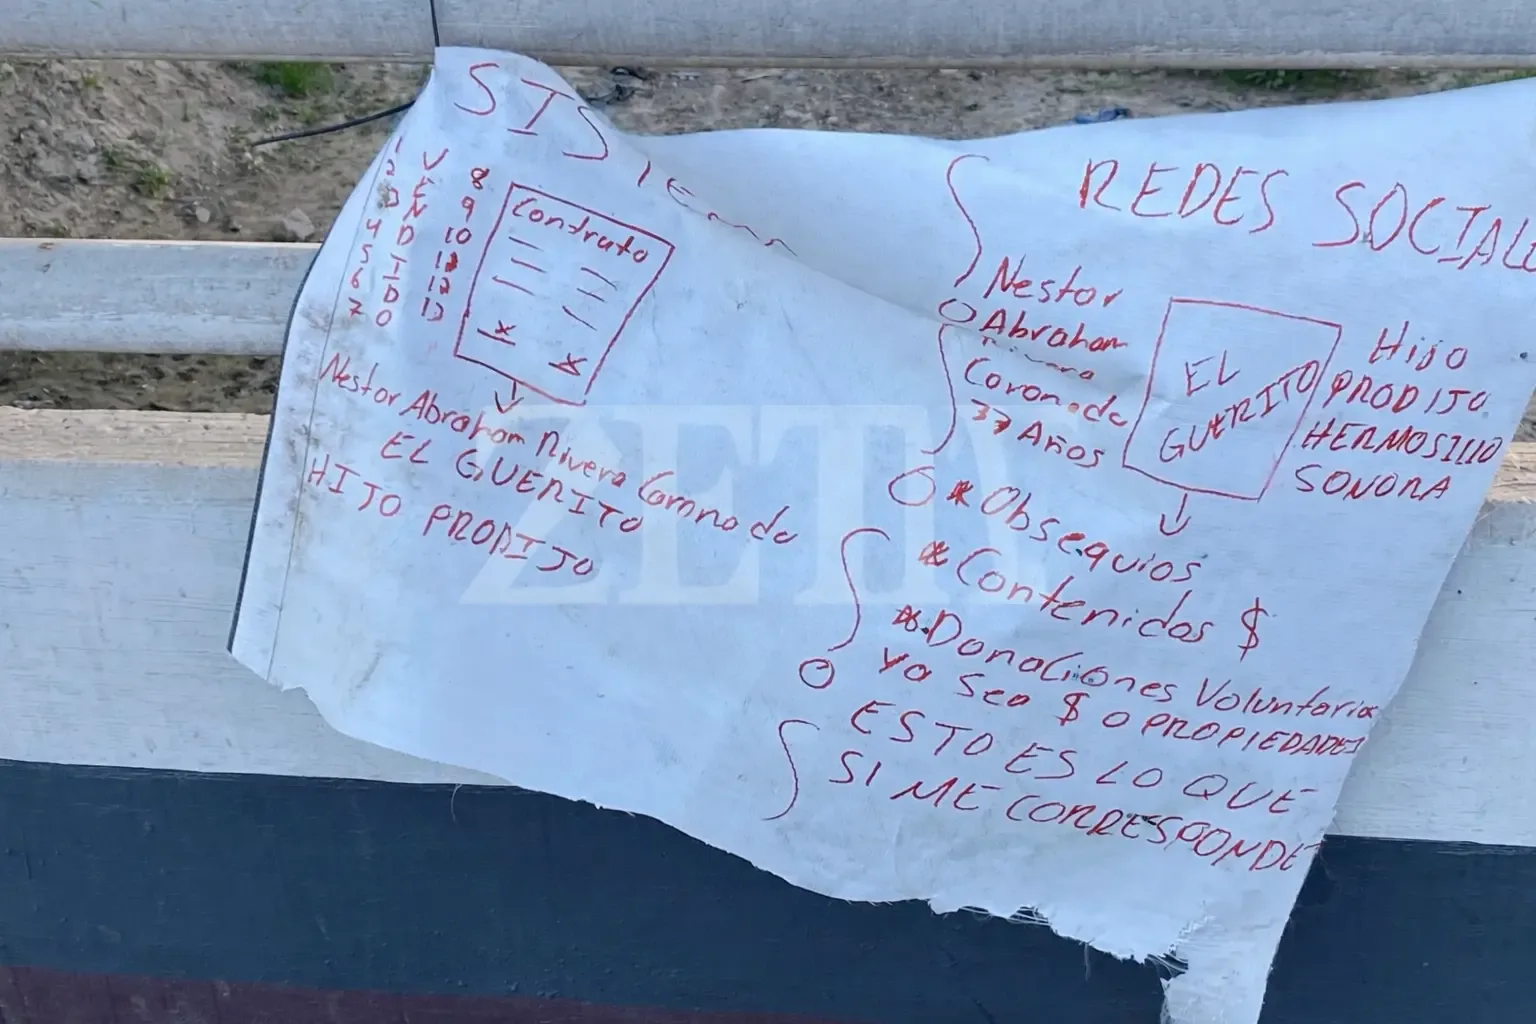 SISTEMA
1 V 8
2 E 9
3 N 10
4 D 11
5 I 12
6 D 13
7 O
Contrato
x
x
Nestor Abraham Rivera Coronado
EL GUERITO
HIJO PRODIJO
REDES SOCIALE
Nestor
Abraham
Rivera
Coronado
37 Años
EL
GUERITO
Hijo
PRODIJO
HERMOSILLO
SONORA
* Obsequios
* Contenidos $
* Donaciones Voluntarias
Ya Sea $ o PROPIEDADES
ESTO ES LO QUE
SI ME CORRESPONDE
ZETA